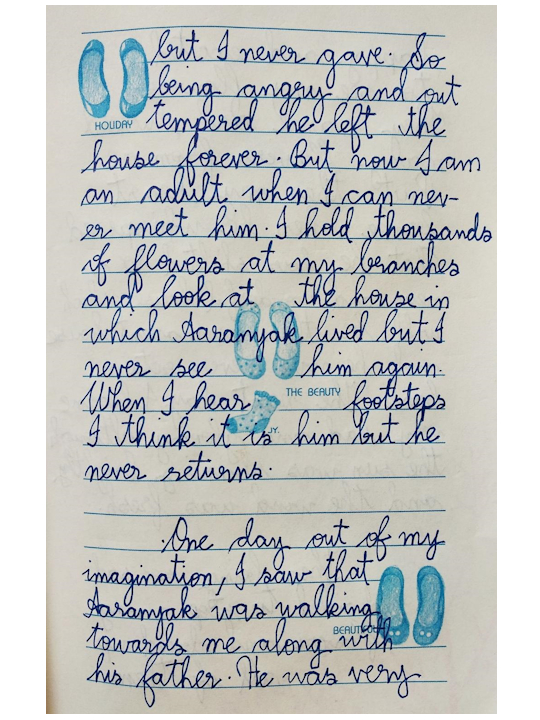 but I never gave. So
being angry and out
tempered he left the
HOLIDAY
house forever. But now I am
an adult when I can nev-
er meet him. I hold thousands
of flowers at my branches
and look at the house in
which Aaranyak lived but I
never see him again.
THE BEAUTY
When I hear footsteps
I think it is him but he
JY.
never returns.
One day out of my
imagination, I saw that
Aaranyak was walking
BEAUTIFUL
towards me along with
his father. He was very